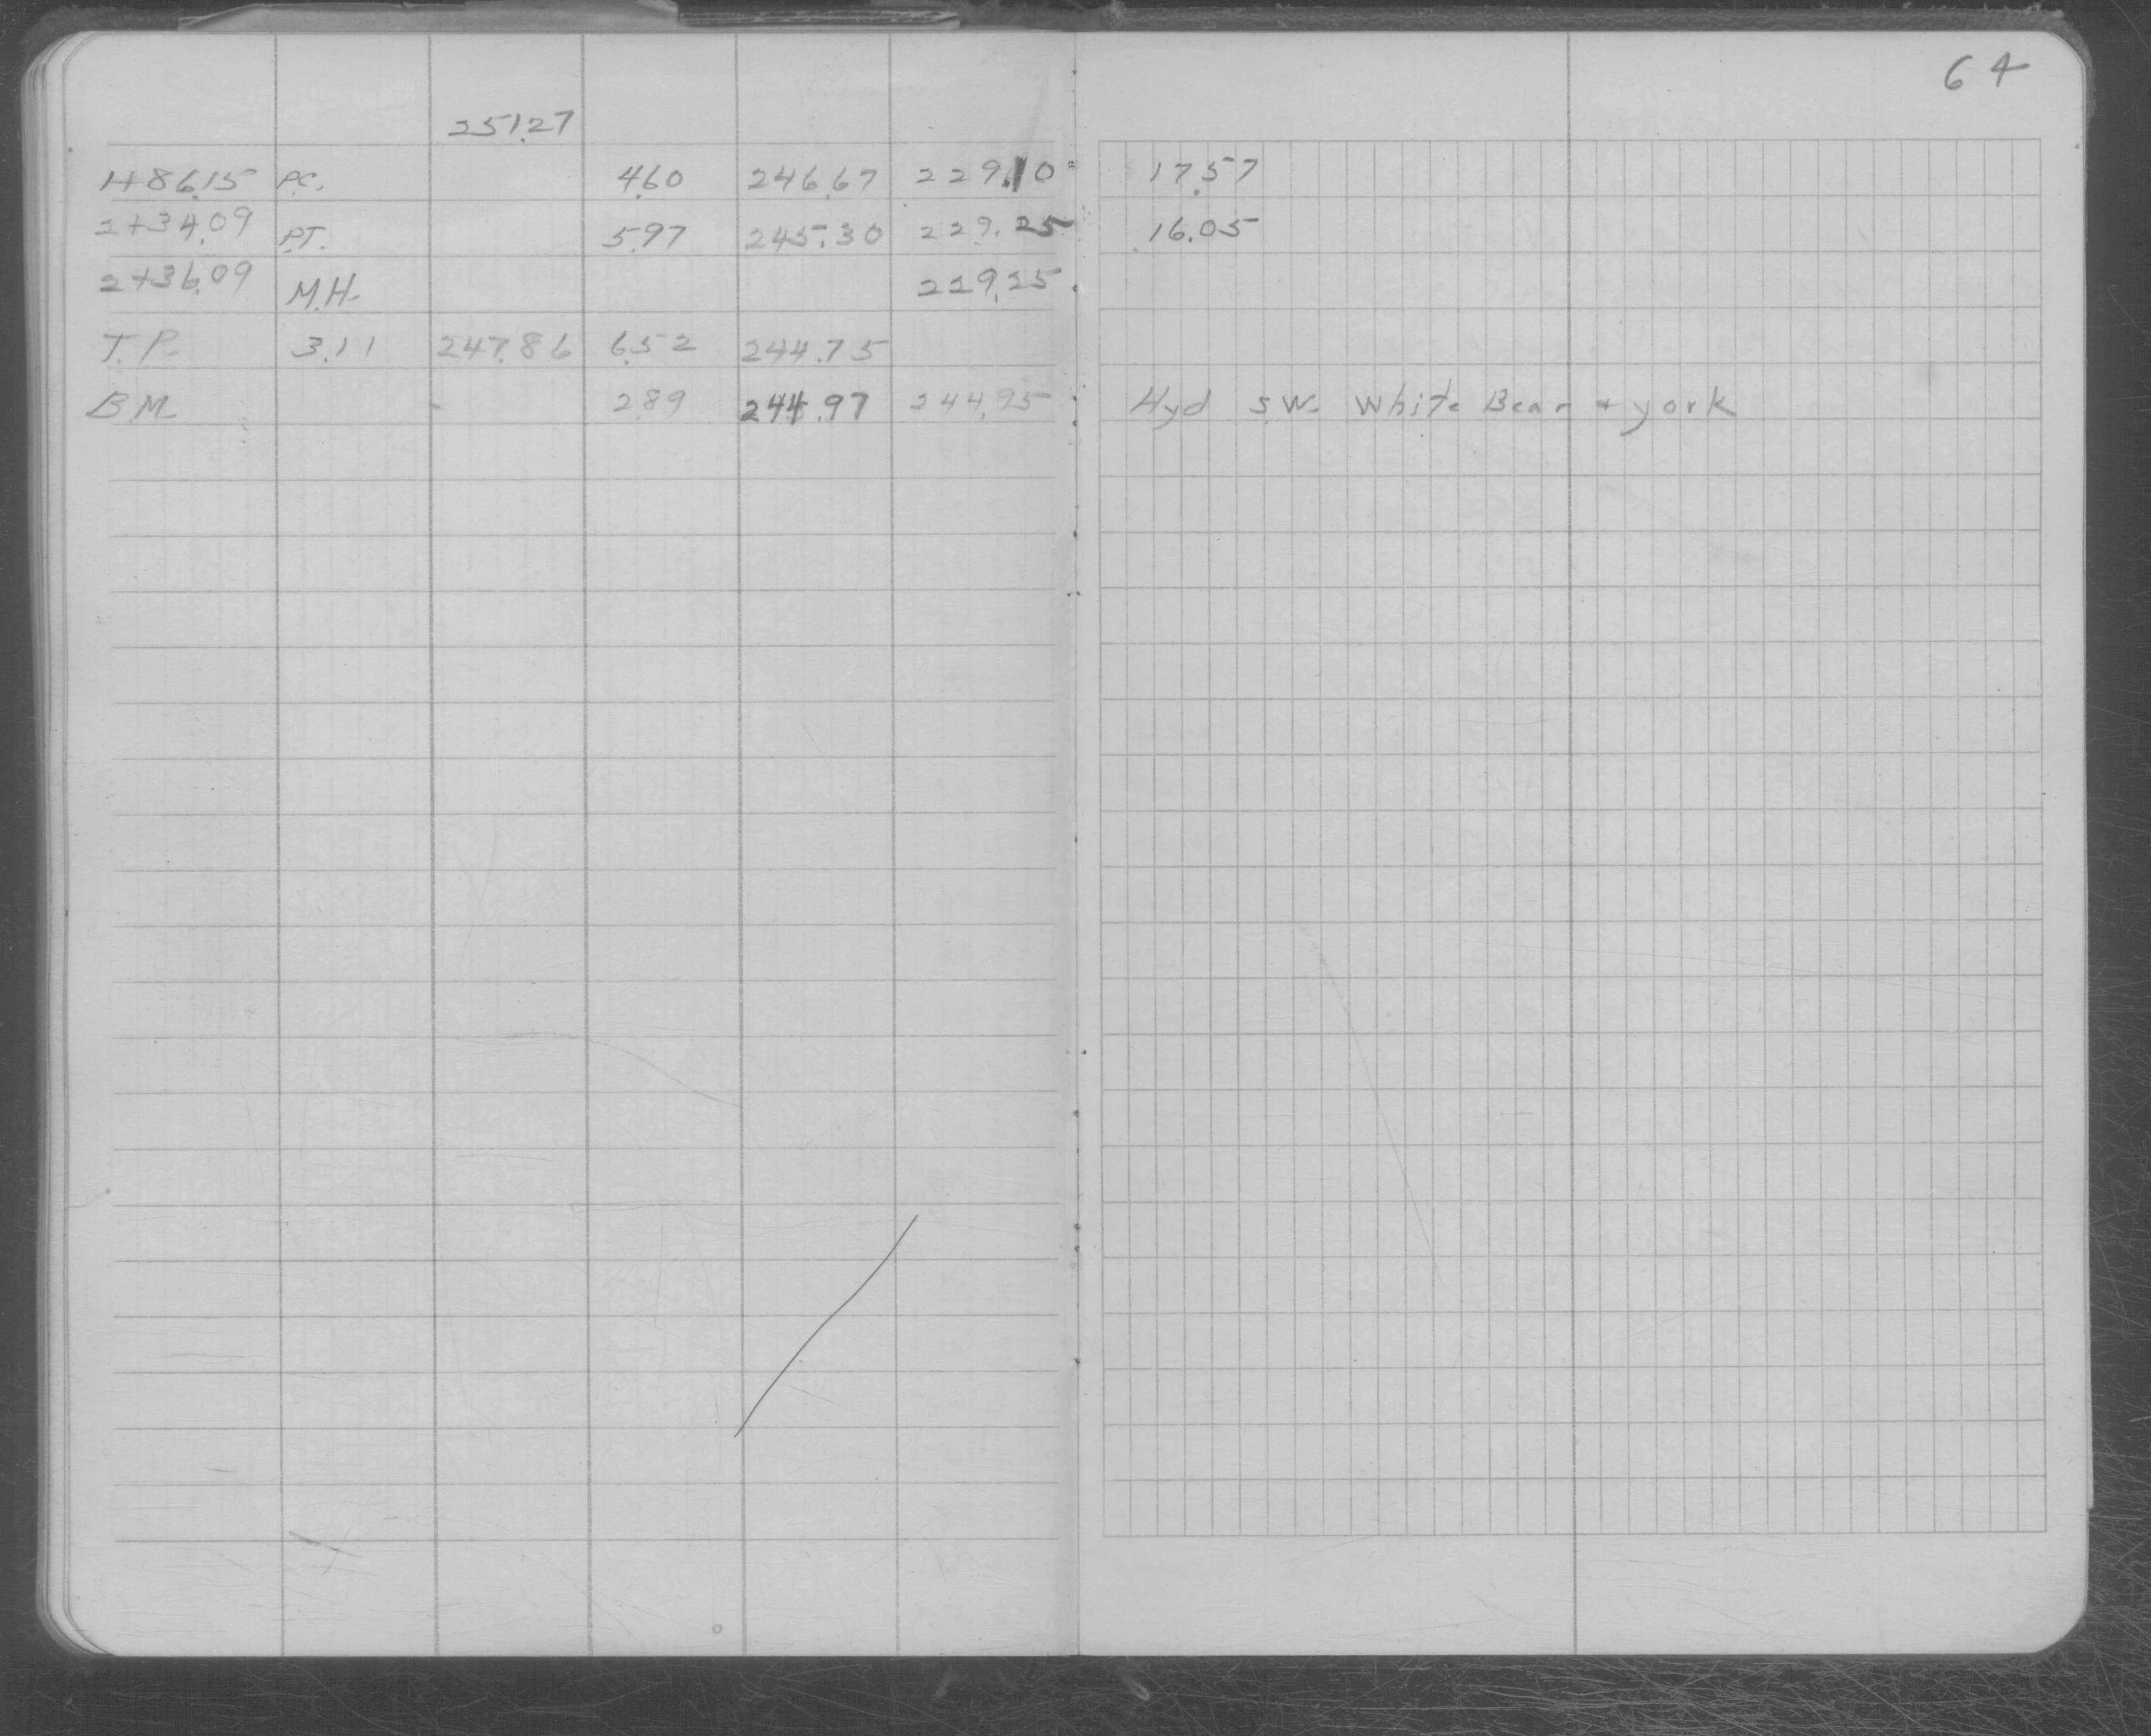 64
251.27
1+86.15 P.C. 4.60 246.67 229.10 17.57
2+34.09 P.T. 5.97 245.30 229.25 16.05
2+36.09 M.H. 229.25
T.P. 3.11 247.86 6.52 244.75
B.M. - 2.89 244.97 244.95 Hyd SW. White Bear + york